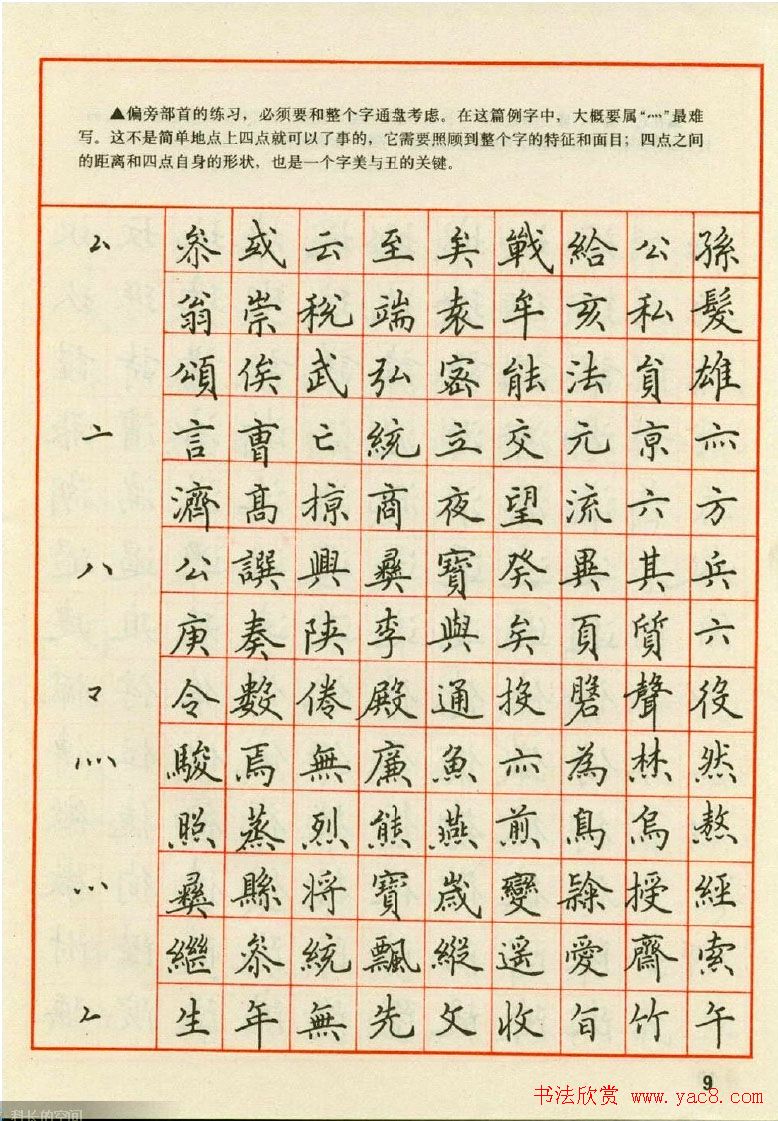 ▲偏旁部首的练习,必须要和整个字通盘考虑。在这篇例字中,大概要属“灬”最难
写。这不是简单地点上四点就可以了事的,它需要照顾到整个字的特征和面目;四点之间
的距离和四点自身的形状,也是一个字美与丑的关键。
厶 参 或 云 至 矣 戰 給 公 孫
翁 崇 稅 端 袁 牟 亥 私 髮
頌 俟 武 弘 密 能 法 貟 雄
亠 言 曹 亡 統 立 交 元 京 亦
濟 高 掠 商 夜 望 流 六 方
八 公 譔 興 彝 寶 癸 異 其 兵
庚 奏 陝 李 與 矣 頁 質 六
龴 令 數 倦 殿 通 投 聲 役
灬 駿 焉 無 廉 魚 亦 為 然
照 蒸 烈 熊 燕 煎 鳥 烏 熬
彝 縣 将 寶 歲 變 授 經
繼 参 統 飄 縱 遥 愛 齋 索
𠂉 生 年 無 先 文 收 竹 午
9
书法欣赏 www.yac8.com
科长的空间